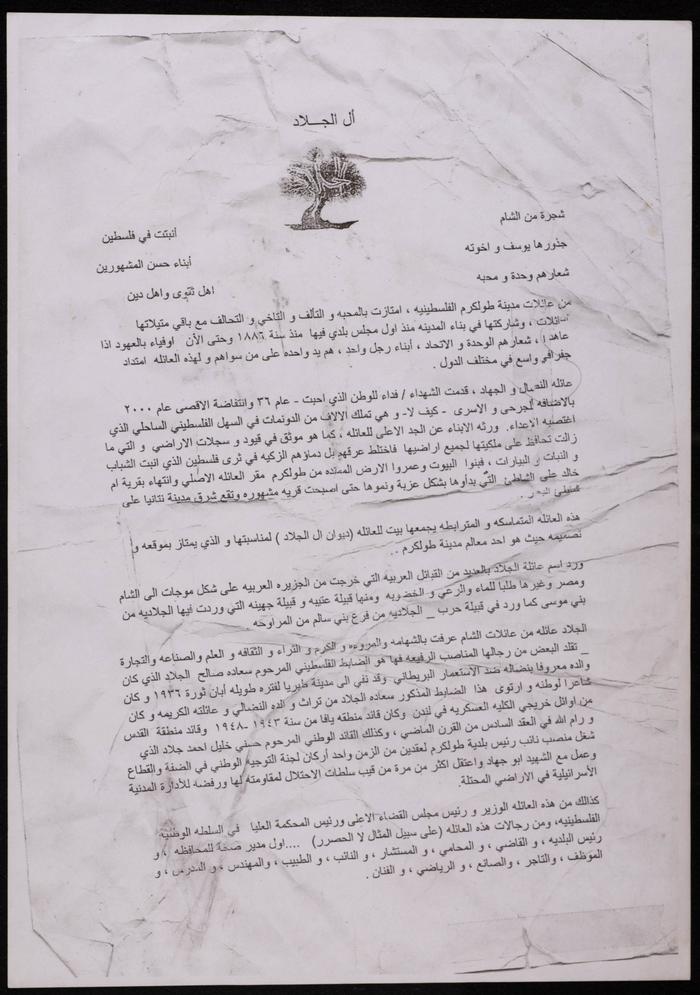 أل الجـــلاد
شجرة من الشام
أنبتت في فلسطين
جذورها يوسف و اخوته
أبناء حسن المشهورين
شعارهم وحدة و محبه
اهل تقوى واهل دين
من عائلات مدينة طولكرم الفلسطينيه ، امتازت بالمحبه و التألف و التاخي و التحالف مع باقي مثيلاتها
، وشاركتها في بناء المدينه منذ اول مجلس بلدي فيها منذ سنة ١٨٨٦ وحتى الأن اوفياء بالعهود اذا
، شعارهم الوحدة و الاتحاد ، أبناء رجل واحد ، هم يد واحده على من سواهم و لهذه العائله امتداد
جغرافي واسع في مختلف الدول .
عائله النضال و الجهاد ، قدمت الشهداء / فداء للوطن الذي احبت - عام ٣٦ وانتفاضة الاقصى عام ٢٠٠٠
بالاضافه للجرحى و الاسرى - كيف لا - و هي تملك الالاف من الدونمات في السهل الفلسطيني الساحلي الذي
اغتصبه الاعداء. ورثه الابناء عن الجد الاعلى للعائله ، كما هو موثق في قيود و سجلات الاراضي ، و التي ما
زالت تحافظ على ملكيتها لجميع اراضيها فاختلط عرقهم بل دماؤهم الزكيه في ثرى فلسطين الذي انبت الشباب
و النبات و البيارات ، فبنوا البيوت وعمروا الارض الممتده من طولكرم مقر العائله الاصلي وانتهاء بقرية ام
خالد على الشاطئ التي بدأوها بشكل عزبة ونموها حتى اصبحت قريه مشهوره وتقع شرق مدينة نتانيا على
هذه العائله المتماسكه و المترابطه يجمعها بيت للعائله (ديوان ال الجلاد ) لمناسبتها و الذي يمتاز بموقعه و
تصميمه حيث هو احد معالم مدينة طولكرم .
ورد اسم عائلة الجلاد بالعديد من القبائل العربيه التي خرجت من الجزيره العربيه على شكل موجات الى الشام
ومصر وغيرها طلبا للماء والرعي و الخضوبه ومنها قبيلة عتيبه و قبيلة جهينه التي وردت فيها الجلاديه من
بني موسى كما ورد في قبيلة حرب _ الجلاديه من فرع بني سالم من المراوحه .
الجلاد عائله من عائلات الشام عرفت بالشهامه والمروءه و الكرم و الثراء و الثقافه و العلم والصناعه والتجارة
_ تقلد البعض من رجالها المناصب الرفيعه فها هو الضابط الفلسطيني المرحوم سعاده صالح الجلاد الذي كان
والده معروفا بنضاله ضد الاستعمار البريطاني وقد نفي الى مدينة طبريا لفتره طويله ابان ثورة ١٩٣٦ و كان
شاعرا لوطنه و ارتوى هذا الضابط المذكور سعاده الجلاد من تراث و الده النضالي و عائلته الكريمه و كان
من اوائل خريجي الكليه العسكريه في لندن وكان قائد منطقة يافا من سنة ١٩٤٣-١٩٤٨ وقائد منطقة القدس
و رام الله في العقد السادس من القرن الماضي ، وكذلك القائد الوطني المرحوم حسني خليل احمد جلاد الذي
شغل منصب نائب رئيس بلدية طولكرم لعقدين من الزمن واحد أركان لجنة التوجيه الوطني في الضفة والقطاع
وعمل مع الشهيد ابو جهاد واعتقل اكثر من مرة من قيب سلطات الاحتلال لمقاومته لها ورفضه للأدارة المدنية
الأسرائيلية في الاراضي المحتلة.
كذالك من هذه العائله الوزير و رئيس مجلس القضاء الاعلى ورئيس المحكمة العليا في السلطه الوطنيه
الفلسطينيه، ومن رجالات هذه العائله (على سبيل المثال لا الحصرر) ....اول مدير صحة للمحافظه ، و
رئيس البلديه ، و القاضي ، و المحامي ، و المستشار ، و النائب ، و الطبيب ، والمهندس ، و المدرس ، و
الموظف ، والتاجر ، والصانع ، و الرياضي ، و الفنان .